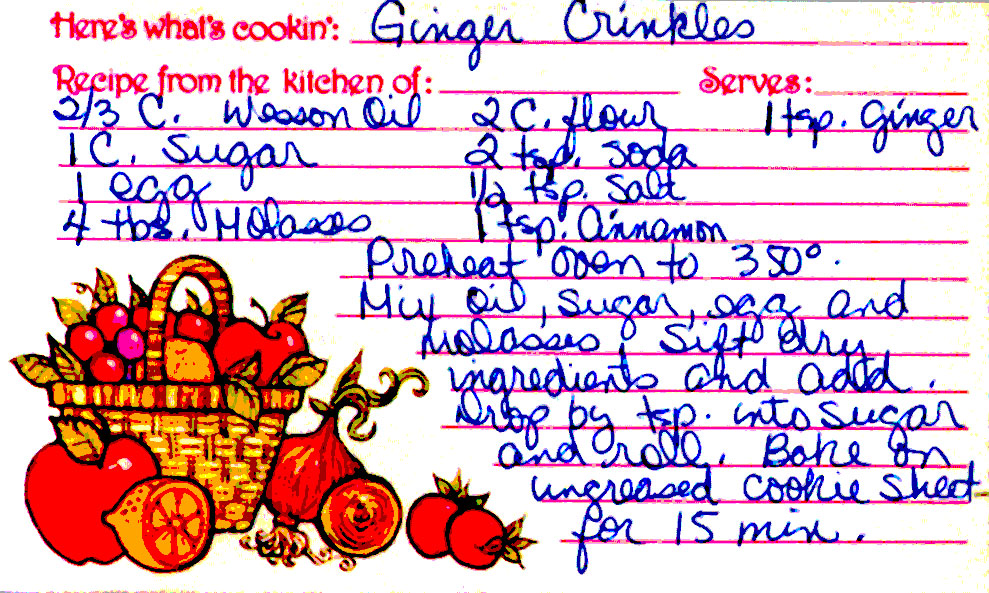 Here's what's cookin': Ginger Crinkles
Recipe from the kitchen of: Serves:
2/3 C. Wesson Oil 2 C. flour 1 tsp. Ginger
1 C. Sugar 2 tsp. Soda
1 egg 1/2 tsp. Salt
4 tbs. Molasses 1 tsp. Cinnamon
Preheat oven to 350°.
Mix oil, sugar, egg and
molasses. Sift dry
ingredients and add.
Drop by tsp. into sugar
and roll. Bake on
ungreased cookie sheet
for 15 min.